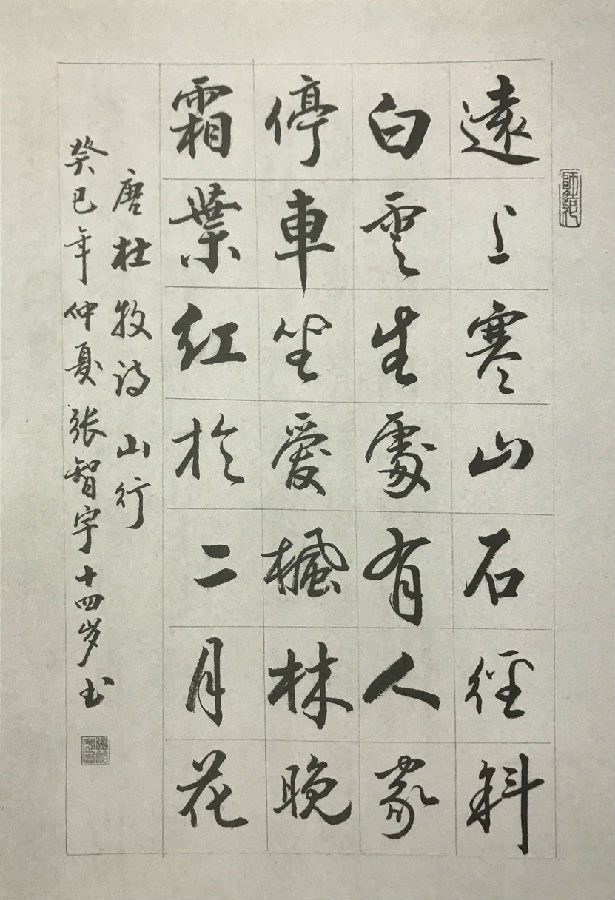 遠上寒山石徑斜
白雲生處有人家
停車坐愛楓林晚
霜葉紅於二月花
唐杜牧詩山行
癸巳年仲夏張智宇十四岁书